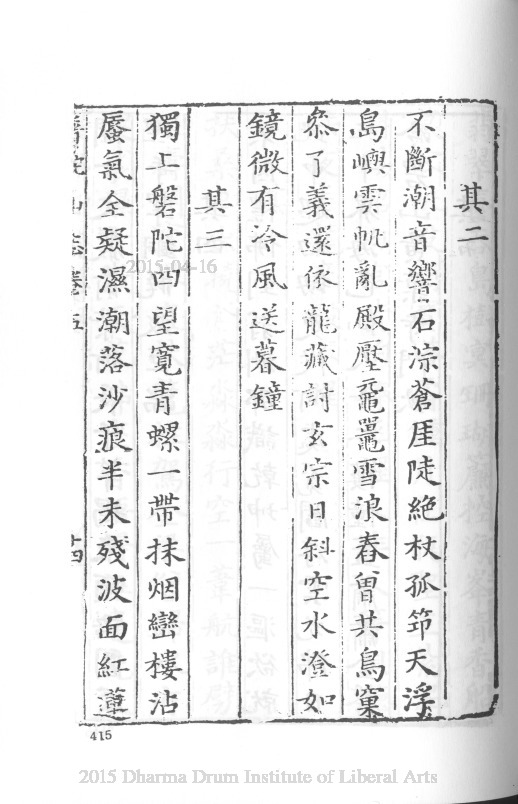 其二
不斷潮音響石淙蒼厓陡絶杖孤筇天浮
島嶼雲帆亂殿壓黿鼉雪浪舂曾共鳥窠
叅了義還依龍藏討玄宗日斜空水澄如
鏡微有冷風送暮鐘
其三
獨上磐陀四望寬青螺一帶抹烟巒樓沾
蜃氣全疑濕潮落沙痕半未殘波面紅蓮
山志卷五
十四
415
2015-04-16
2015 Dharma Drum Institute of Liberal Arts